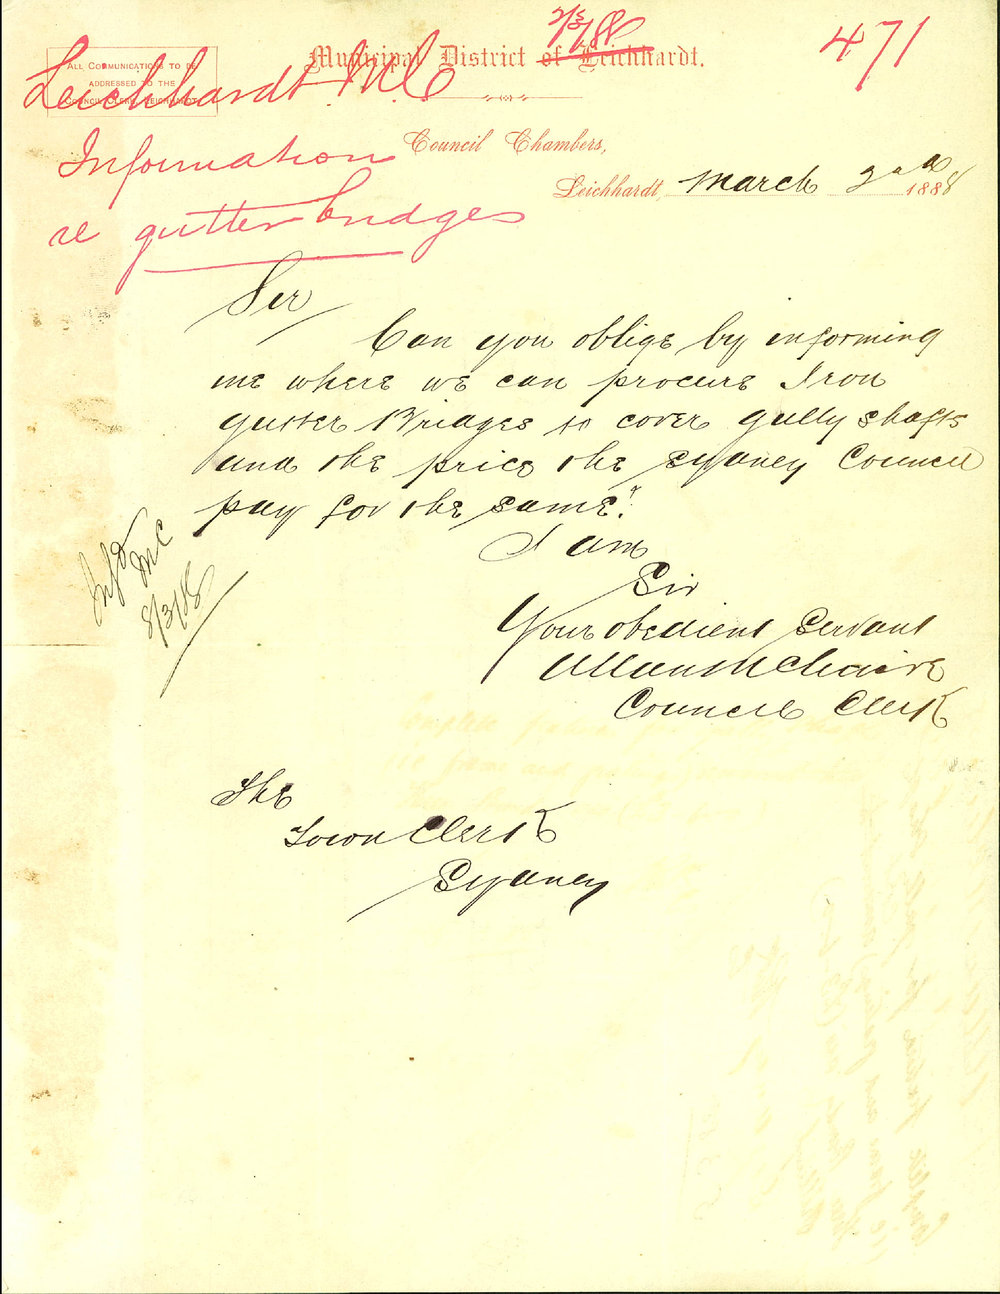 2/3/88
471
Municipal District of Leichhardt.
ALL COMMUNICATIONS TO BE
ADDRESSED TO THE
COUNCIL CLERK, LEICHHARDT.
Leichhardt M.C
Information
re gutter bridges
Council Chambers,
Leichhardt, March 2nd 1888
Sir
Can you oblige by informing
me where we can procure Iron
gutter Bridges to cover gully shafts
and the price the Sydney Council
pay for the same."
I am
Sir
Your obedient Servant
Council Clerk
Infd
MC
8/3/88
The
Town Clerk
Sydney